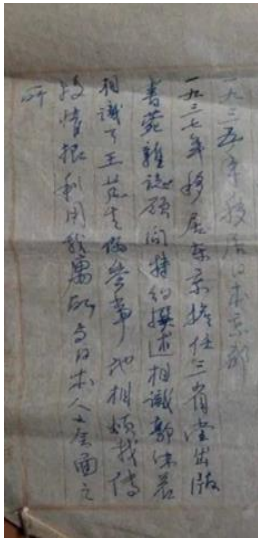 一九三五年移居日本京都
一九三七年移居东京担任三省堂出版
书苑雜誌顾问特约撰述相識郭沫若
相識了王芃生
情报利用我寓所与日本人士会面之
所